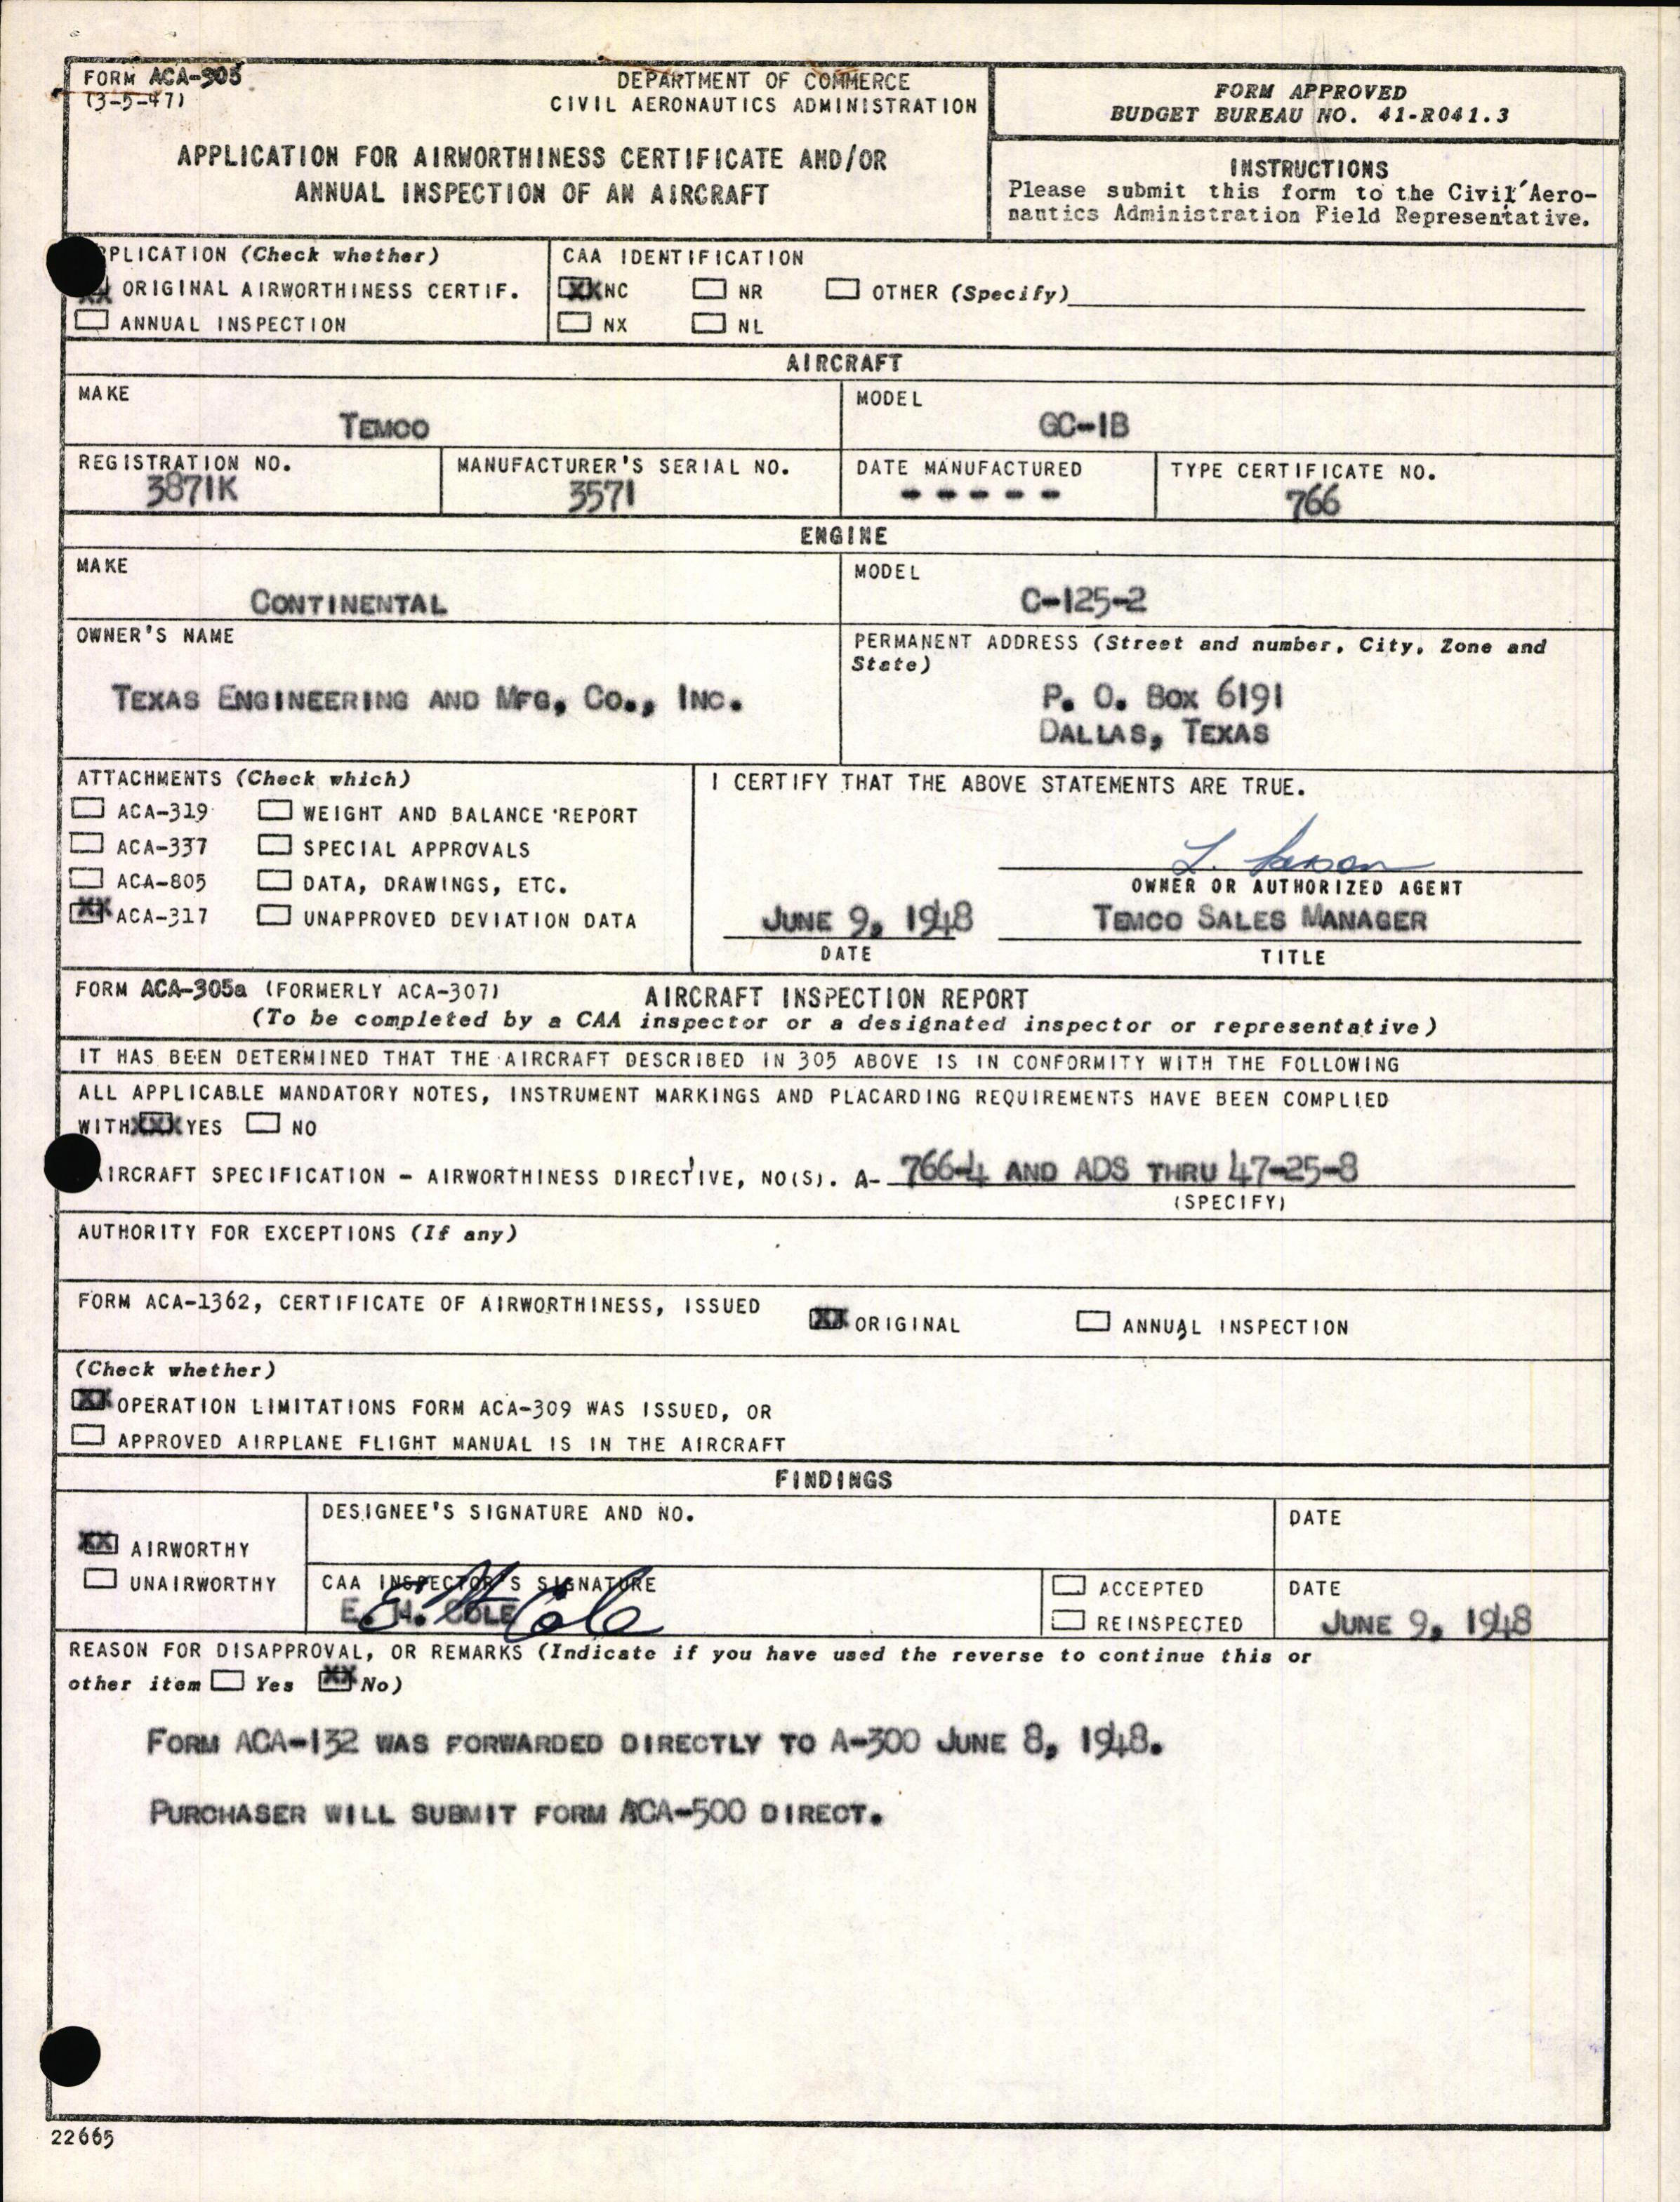 FORM ACA-305
(3-5-47)
DEPARTMENT OF COMMERCE
CIVIL AERONAUTICS ADMINISTRATION
APPLICATION FOR AIRWORTHINESS CERTIFICATE AND/OR
ANNUAL INSPECTION OF AN AIRCRAFT
FORM APPROVED
BUDGET BUREAU NO. 41-R041.3
INSTRUCTIONS
Please submit this form to the Civil Aero-
nautics Administration Field Representative.
PLICATION (Check whether)
XX ORIGINAL AIRWORTHINESS CERTIF.
ANNUAL INSPECTION
CAA IDENTIFICATION
XX NC NR OTHER (Specify)
NX NL
AIRCRAFT
MAKE
TEMCO
MODEL
GC-1B
REGISTRATION NO.
3871K
MANUFACTURER'S SERIAL NO.
3571
DATE MANUFACTURED
- - - - -
TYPE CERTIFICATE NO.
766
ENGINE
MAKE
CONTINENTAL
MODEL
C-125-2
OWNER'S NAME
TEXAS ENGINEERING AND MFG. CO., INC.
PERMANENT ADDRESS (Street and number, City, Zone and
State)
P. O. BOX 6191
DALLAS, TEXAS
ATTACHMENTS (Check which)
ACA-319 WEIGHT AND BALANCE REPORT
ACA-337 SPECIAL APPROVALS
ACA-805 DATA, DRAWINGS, ETC.
XX ACA-317 UNAPPROVED DEVIATION DATA
I CERTIFY THAT THE ABOVE STATEMENTS ARE TRUE.
L.
OWNER OR AUTHORIZED AGENT
JUNE 9, 1948 TEMCO SALES MANAGER
DATE TITLE
FORM ACA-305a (FORMERLY ACA-307) AIRCRAFT INSPECTION REPORT
(To be completed by a CAA inspector or a designated inspector or representative)
IT HAS BEEN DETERMINED THAT THE AIRCRAFT DESCRIBED IN 305 ABOVE IS IN CONFORMITY WITH THE FOLLOWING
ALL APPLICABLE MANDATORY NOTES, INSTRUMENT MARKINGS AND PLACARDING REQUIREMENTS HAVE BEEN COMPLIED
WITH XXX YES NO
AIRCRAFT SPECIFICATION - AIRWORTHINESS DIRECTIVE, NO(S). A- 766-4 AND ADS THRU 47-25-8
(SPECIFY)
AUTHORITY FOR EXCEPTIONS (If any)
FORM ACA-1362, CERTIFICATE OF AIRWORTHINESS, ISSUED XX ORIGINAL ANNUAL INSPECTION
(Check whether)
XX OPERATION LIMITATIONS FORM ACA-309 WAS ISSUED, OR
APPROVED AIRPLANE FLIGHT MANUAL IS IN THE AIRCRAFT
FINDINGS
XX AIRWORTHY
UNAIRWORTHY
DESIGNEE'S SIGNATURE AND NO.
DATE
CAA INSPECTOR'S SIGNATURE
E. H. COLE
E H Cole
ACCEPTED
REINSPECTED
DATE
JUNE 9, 1948
REASON FOR DISAPPROVAL, OR REMARKS (Indicate if you have used the reverse to continue this or
other item Yes XX No)
FORM ACA-132 WAS FORWARDED DIRECTLY TO A-300 JUNE 8, 1948.
PURCHASER WILL SUBMIT FORM ACA-500 DIRECT.
22665